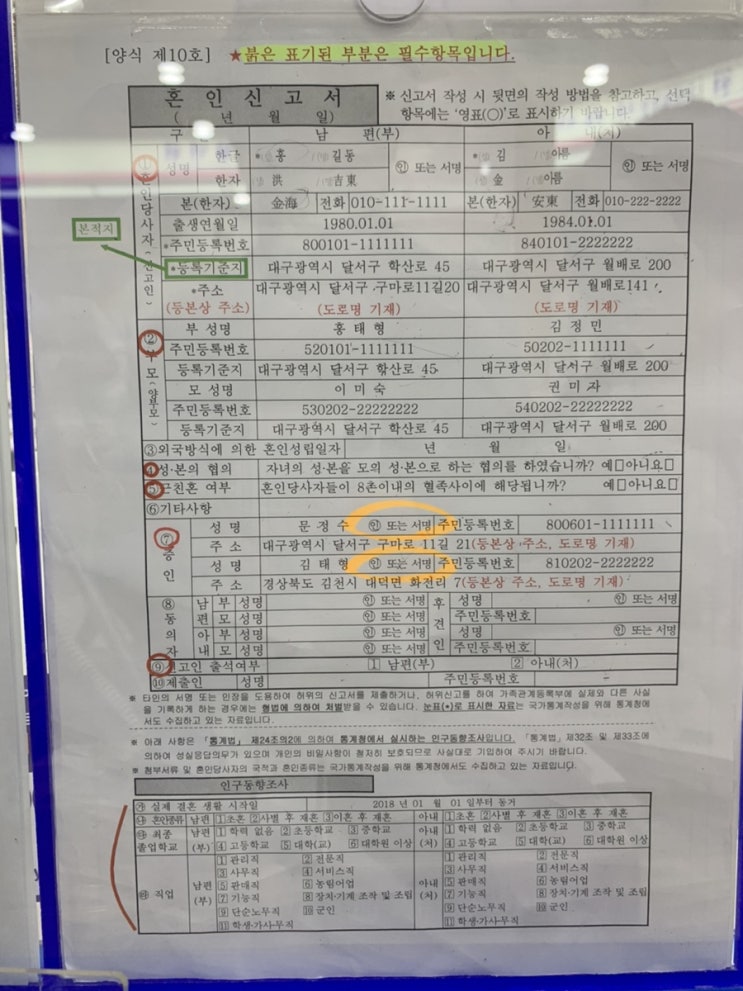 [양식 제10호] ★붉은 표기된 부분은 필수항목입니다.
혼 인 신 고 서
( 년 월 일)
※ 신고서 작성 시 뒷면의 작성 방법을 참고하고, 선택
항목에는 '영표(○)'로 표시하기 바랍니다.
구 분 남 편(부) 아 내(처)
① 혼인당사자(신고인)
성명 한글 *홍 길동 ㊞ 또는 서명 *김 이름 ㊞ 또는 서명
한자 洪 吉東 金 이름
본(한자) 金海 전화 010-111-1111 본(한자) 安東 전화 010-222-2222
본적지
출생연월일 1980.01.01 1984.01.01
*주민등록번호 800101-1111111 840101-2222222
*등록기준지 대구광역시 달서구 학산로 45 대구광역시 달서구 월배로 200
*주소 대구광역시 달서구 구마로11길20 대구광역시 달서구 월배로141
(등본상 주소) (도로명 기재) (도로명 기재)
② 부모(양부모)
부 성명 홍태형 김정민
주민등록번호 520101-1111111 50202-1111111
등록기준지 대구광역시 달서구 학산로 45 대구광역시 달서구 월배로 200
모 성명 이미숙 권미자
주민등록번호 530202-22222222 540202-22222222
등록기준지 대구광역시 달서구 학산로 45 대구광역시 달서구 월배로 200
③외국방식에 의한 혼인성립일자 년 월 일
④성·본의 협의 자녀의 성·본을 모의 성·본으로 하는 협의를 하였습니까? 예□아니요□
⑤근친혼 여부 혼인당사자들이 8촌이내의 혈족사이에 해당됩니까? 예□아니요□
⑥기타사항
⑦ 증인
성 명 문정수 ㊞ 또는 서명 주민등록번호 800601-1111111
주 소 대구광역시 달서구 구마로 11길 21(등본상 주소, 도로명 기재)
성 명 김태형 ㊞ 또는 서명 주민등록번호 810202-2222222
주 소 경상북도 김천시 대덕면 화전리 7(등본상 주소, 도로명 기재)
⑧ 동의자
남편 부 성명 ㊞ 또는 서명 후견인 성명 ㊞ 또는 서명
모 성명 ㊞ 또는 서명 주민등록번호
아내 부 성명 ㊞ 또는 서명 성명 ㊞ 또는 서명
모 성명 ㊞ 또는 서명 주민등록번호
⑨신고인 출석여부 1 남편(부) 2 아내(처)
⑩제출인 성명 주민등록번호
※ 타인의 서명 또는 인장을 도용하여 허위의 신고서를 제출하거나, 허위신고를 하여 가족관계등록부에 실제와 다른 사실
을 기록하게 하는 경우에는 형법에 의하여 처벌받을 수 있습니다. 눈표(*)로 표시한 자료는 국가통계작성을 위해 통계청에
서도 수집하고 있는 자료입니다.
※ 아래 사항은 「통계법」 제24조의2에 의하여 통계청에서 실시하는 인구동향조사입니다. 「통계법」제32조 및 제33조에
의하여 성실응답의무가 있으며 개인의 비밀사항이 철저히 보호되므로 사실대로 기입하여 주시기 바랍니다.
※ 첨부서류 및 혼인당사자의 국적과 혼인종류는 국가통계작성을 위해 통계청에서도 수집하고 있는 자료입니다.
인구동향조사
㉮ 실제 결혼 생활 시작일 2018 년 01 월 01 일부터 동거
㉯ 혼인종류 남편 1초혼 2사별 후 재혼 3이혼 후 재혼 아내 1초혼 2사별 후 재혼 3이혼 후 재혼
㉰ 최종 남편 1 학력 없음 2 초등학교 3 중학교 아내 1 학력 없음 2 초등학교 3 중학교
졸업학교 (부) 4 고등학교 5 대학(교) 6 대학원 이상 (처) 4 고등학교 5 대학(교) 6 대학원 이상
㉱ 직업 남편(부) 아내(처)
1 관리직 2 전문직 1 관리직 2 전문직
3 사무직 4 서비스직 3 사무직 4 서비스직
5 판매직 6 농림어업 5 판매직 6 농림어업
7 기능직 8 장치·기계 조작 및 조립 7 기능직 8 장치·기계 조작 및 조립
9 단순노무직 10 군인 9 단순노무직 10 군인
11 학생·가사·무직 11 학생·가사·무직